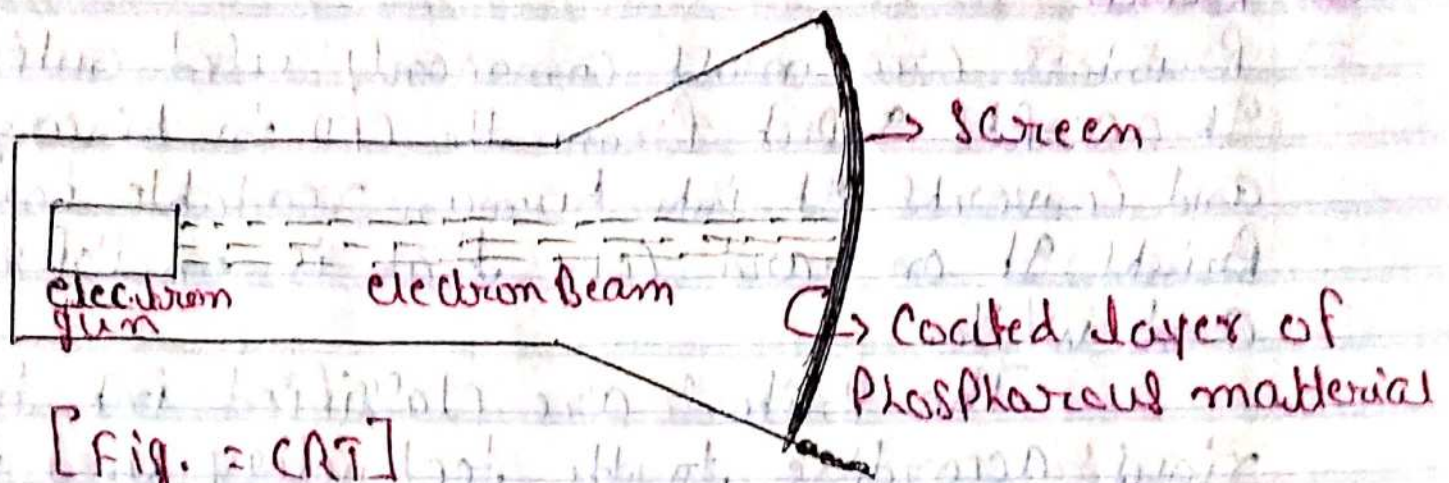 screen
electron
gun
electron Beam
Coated layer of
Phospharous matterial
[Fig. = CRT]